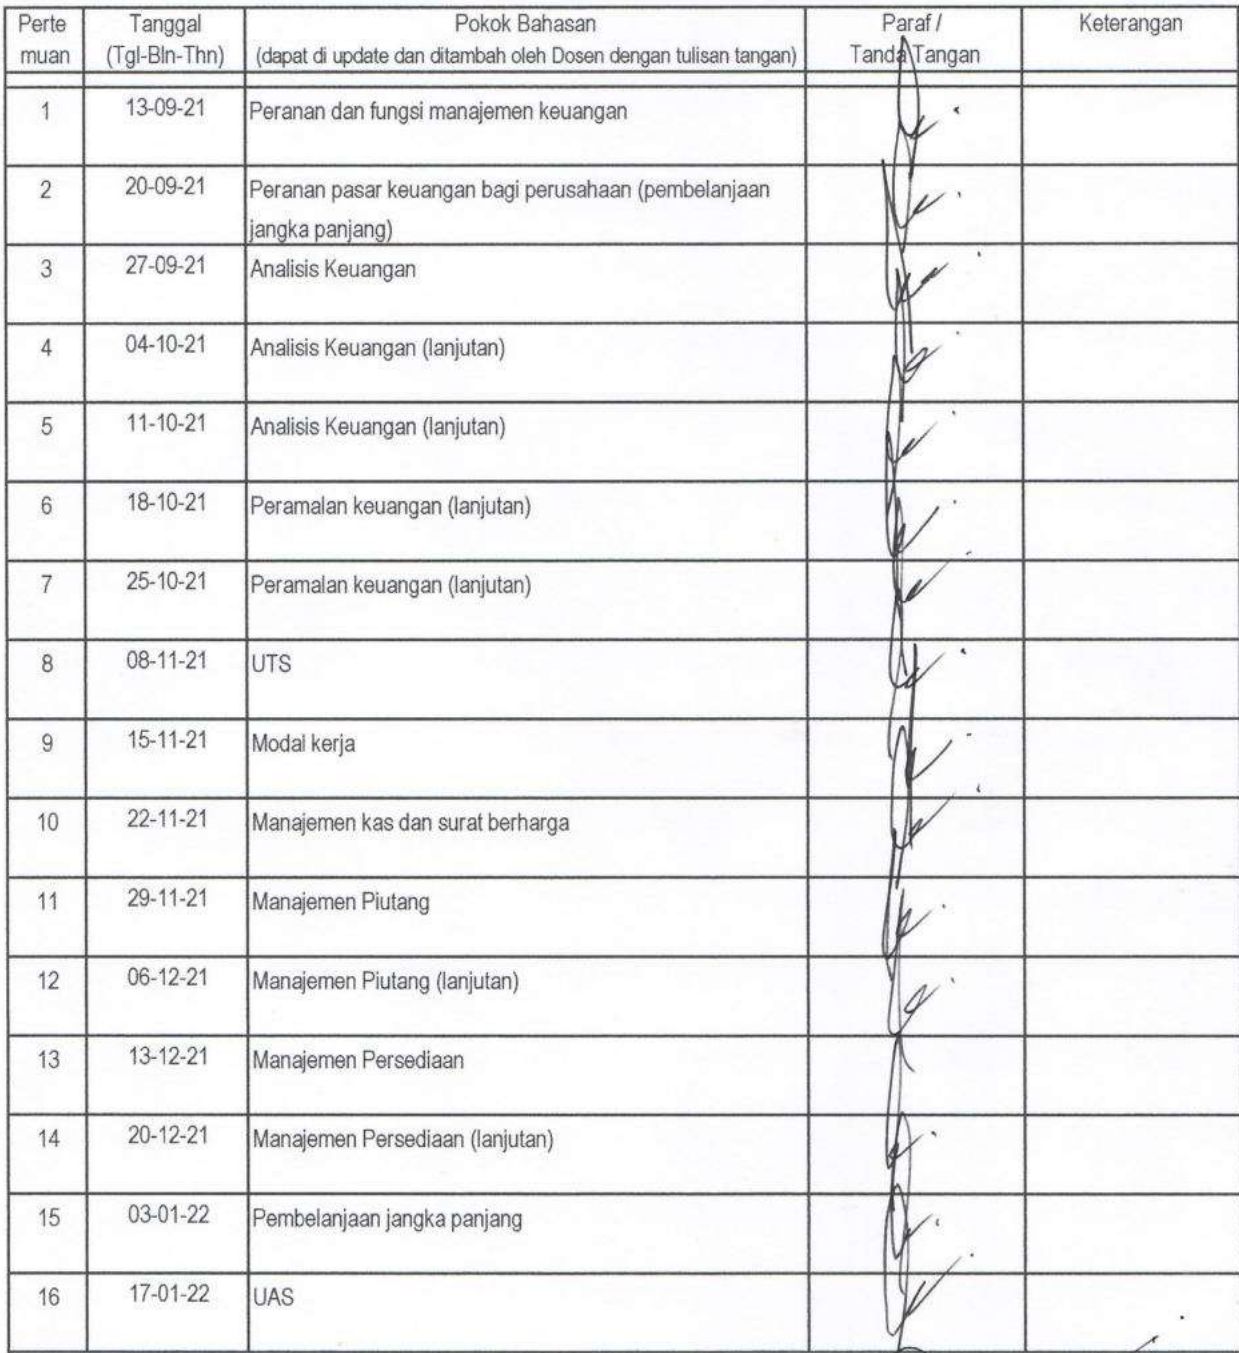 Perte muan Tanggal (Tgl-Bln-Thn) Pokok Bahasan (dapat di update dan ditambah oleh Dosen dengan tulisan tangan) Paraf / Tanda Tangan Keterangan
1 13-09-21 Peranan dan fungsi manajemen keuangan
2 20-09-21 Peranan pasar keuangan bagi perusahaan (pembelanjaan
jangka panjang)
3 27-09-21 Analisis Keuangan
4 04-10-21 Analisis Keuangan (lanjutan)
5 11-10-21 Analisis Keuangan (lanjutan)
6 18-10-21 Peramalan keuangan (lanjutan)
7 25-10-21 Peramalan keuangan (lanjutan)
8 08-11-21 UTS
9 15-11-21 Modal kerja
10 22-11-21 Manajemen kas dan surat berharga
11 29-11-21 Manajemen Piutang
12 06-12-21 Manajemen Piutang (lanjutan)
13 13-12-21 Manajemen Persediaan
14 20-12-21 Manajemen Persediaan (lanjutan)
15 03-01-22 Pembelanjaan jangka panjang
16 17-01-22 UAS